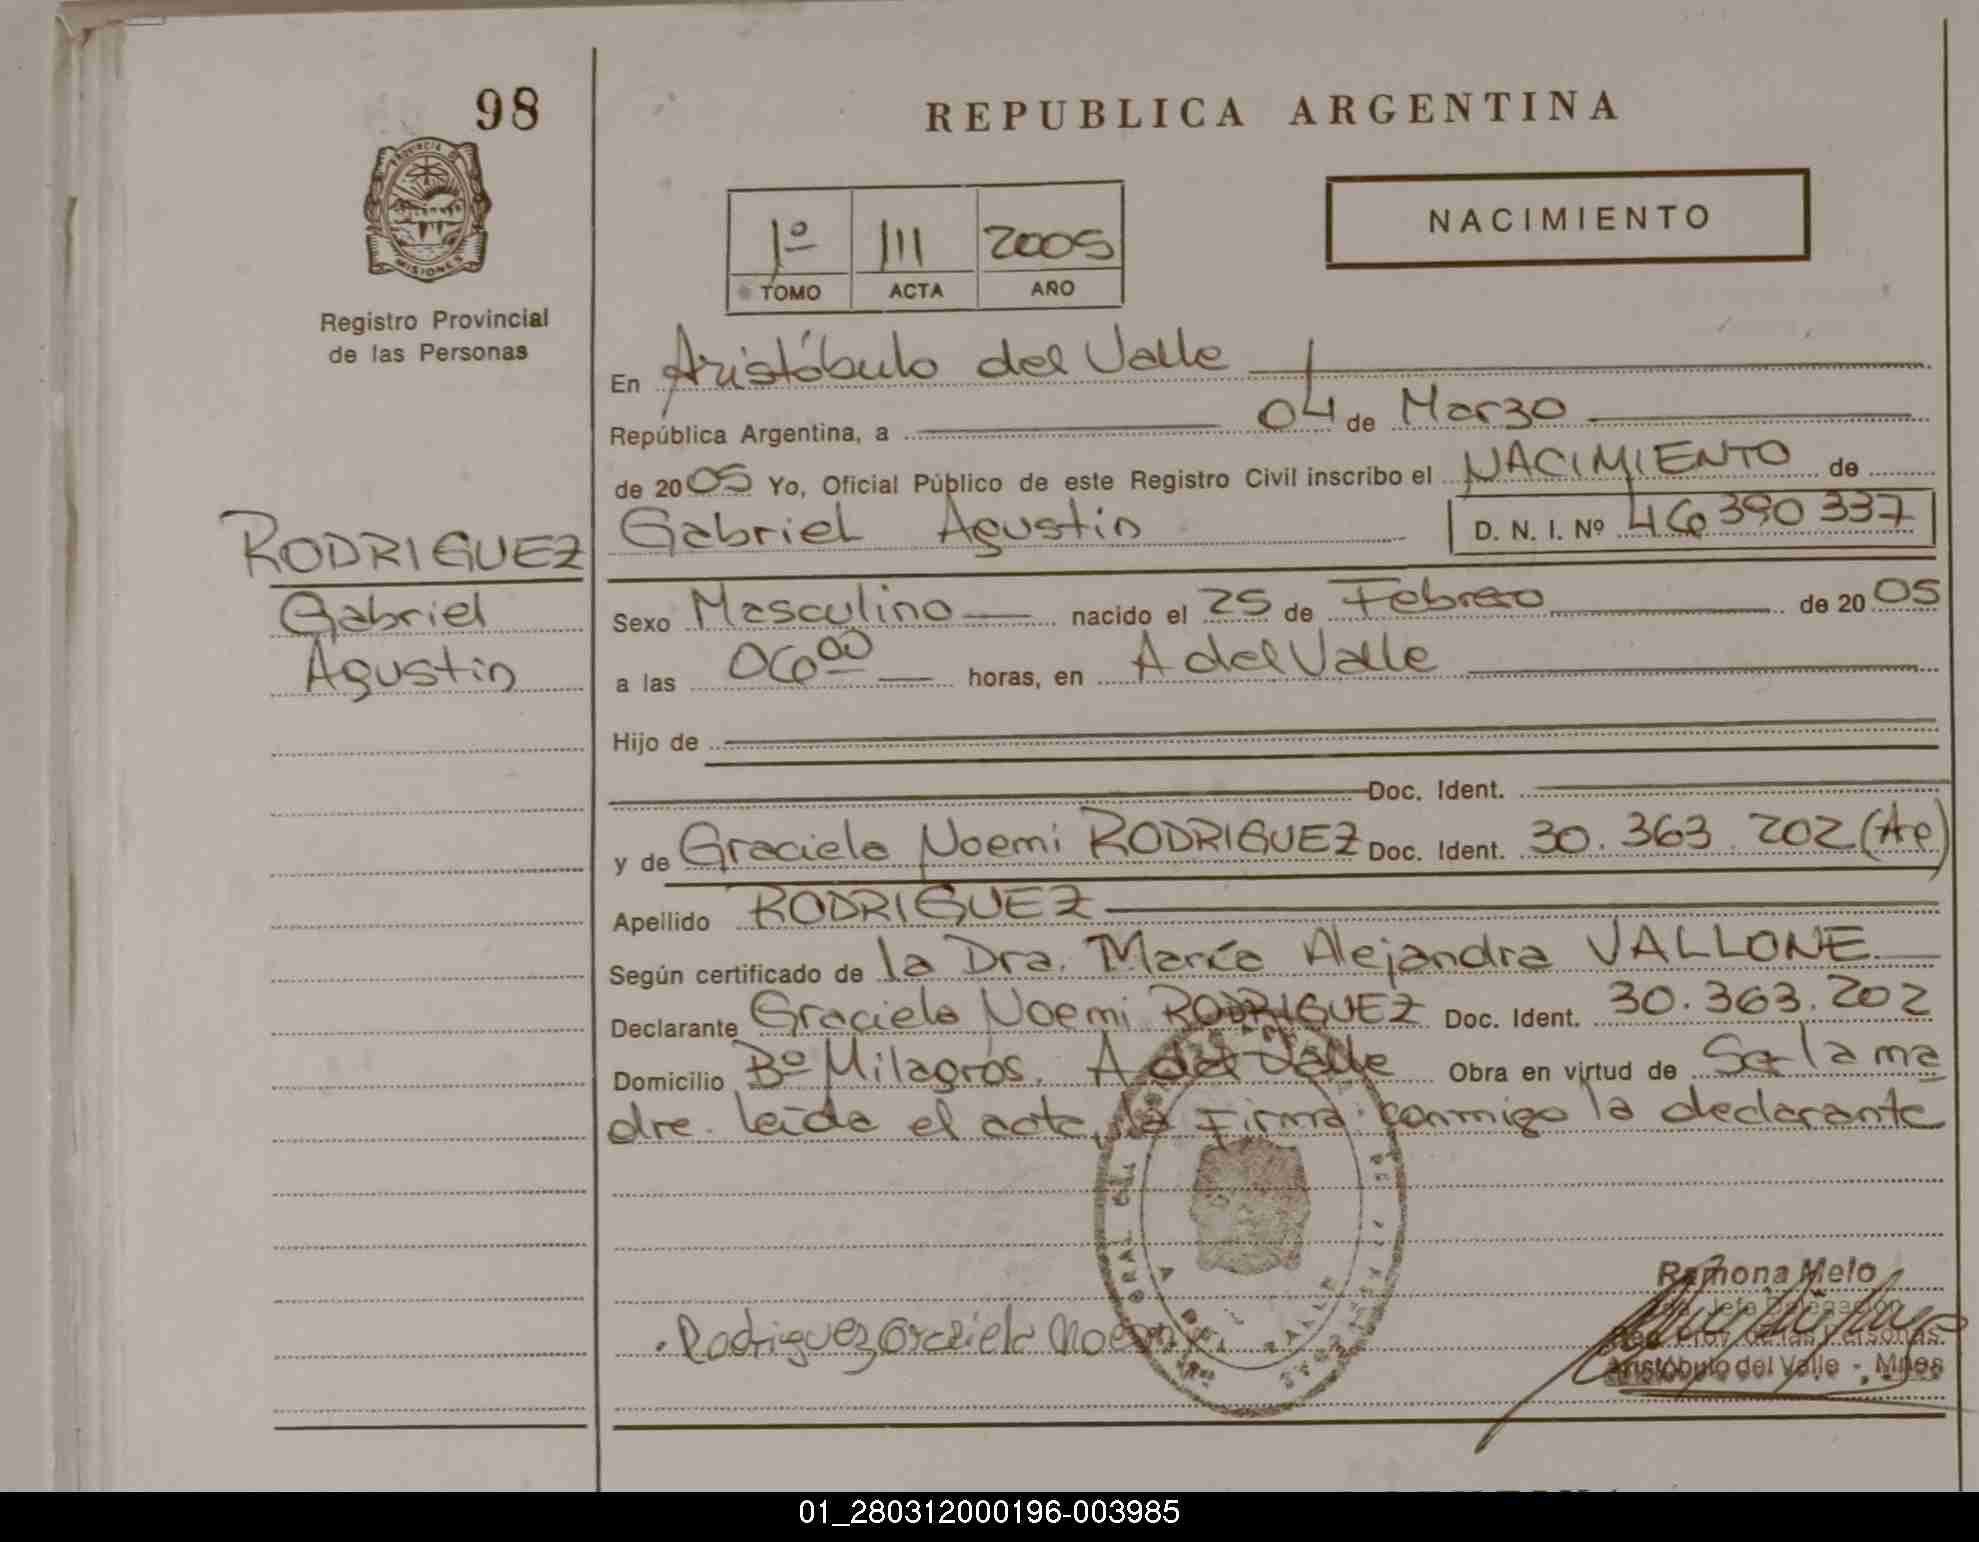 98
REPUBLICA ARGENTINA
PROVINCIA DE
MISIONES
Registro Provincial
de las Personas
1º 111 2005
TOMO ACTA AÑO
NACIMIENTO
En Aristóbulo del Valle
República Argentina, a 04 de Marzo
de 2005 Yo, Oficial Público de este Registro Civil inscribo el NACIMIENTO de
Gabriel Agustin D. N. I. Nº 46390337
RODRIGUEZ
Gabriel
Agustin
Sexo Masculino nacido el 25 de Febrero de 2005
a las 06⁰⁰ horas, en A del Valle
Hijo de
Doc. Ident.
y de Graciela Noemi RODRIGUEZ Doc. Ident. 30.363.202 (Ap)
Apellido RODRIGUEZ
Según certificado de la Dra. María Alejandra VALLONE
Declarante Graciela Noemi RODRIGUEZ Doc. Ident. 30.363.202
Domicilio Bº Milagros. A del Valle Obra en virtud de Se la ma
dre. leída el acta, la Firma conmigo la declarante
A DEL VALLE
Rodriguez Graciela Noemi
Ramona Melo
Jefa Delegación
Reg. Prov. de las Personas
Aristóbulo del Valle - Mnes
01_280312000196-003985